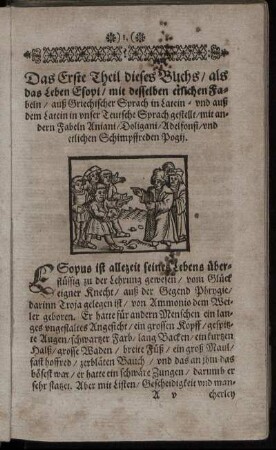 ) 1. (
Das Erste Theil dieses Buchs / als
das Leben Esopi / mit desselben etlichen Fa-
beln / auß Griechischer Sprach in Latein - vnd auß
dem Latein in vnser Teutsche Sprach gestellt / mit an-
dern Fabeln Aniani / Doligani / Adelfonsi / vnd
etlichen Schimpffreden Pogij.
ESopus ist allezeit seines Lebens über-
flüssig zu der Lehrung gewesen / vom Glück
eigner Knecht / auß der Gegend Phrygie /
darinn Troja gelegen ist / von Ammonio dem Wei-
ler geboren. Er hatte für andern Menschen ein lan-
ges vngestaltes Angesicht / ein grossen Kopff / gespitz-
te Augen / schwartzer Farb / lang Backen / ein kurtzen
Halß / grosse Waden / breite Füß / ein groß Maul /
fast hoffred / zerbläten Bauch / vnd das an ihm das
bösest war / er hatte ein schwäre Zungen / darumb er
sehr statzet. Aber mit Listen / Gescheidigkeit vnd man-
A v cherley